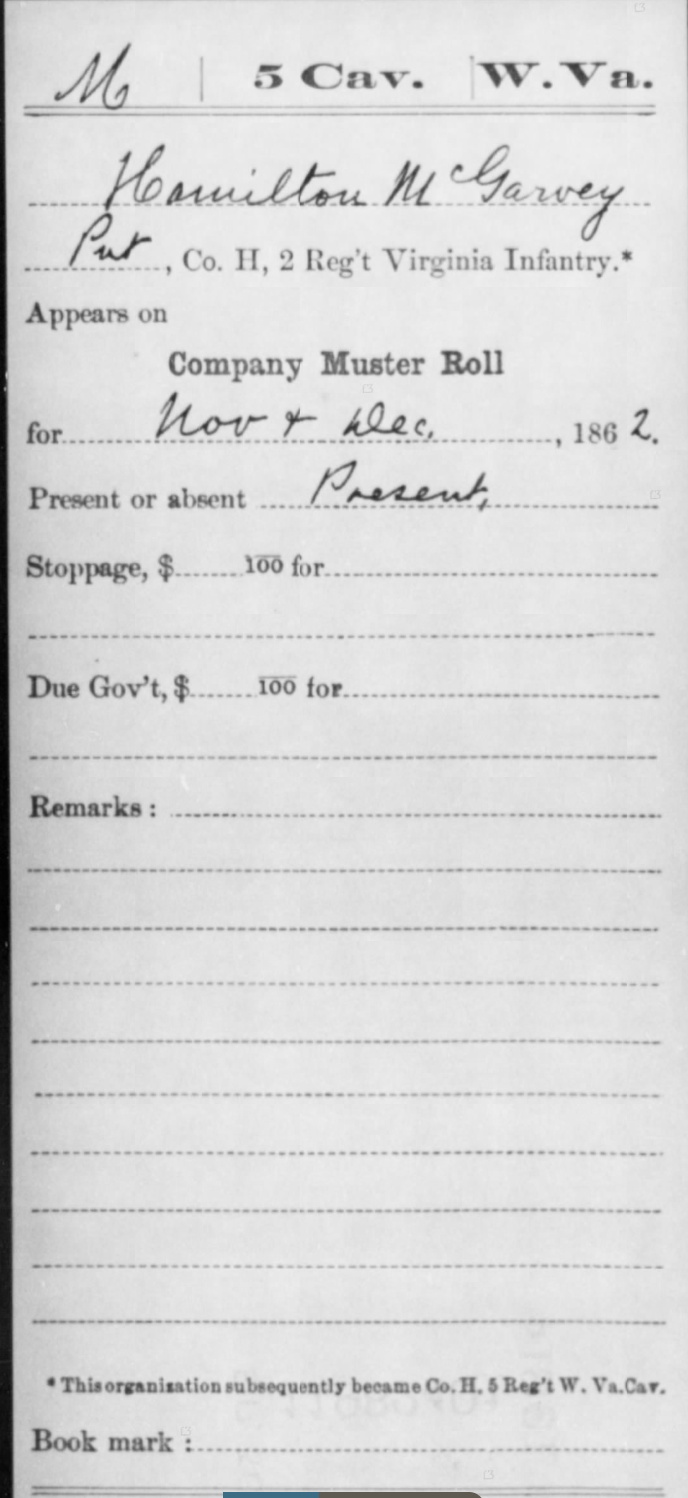 M | 5 Cav. | W.Va.
Hamilton McGarvey
Pvt, Co. H, 2 Reg't Virginia Infantry.*
Appears on
Company Muster Roll
for Nov & Dec., 1862.
Present or absent Present,
Stoppage, $ 100 for
Due Gov't, $ 100 for
Remarks:
* This organization subsequently became Co. H, 5 Reg't W. Va. Cav.
Book mark: